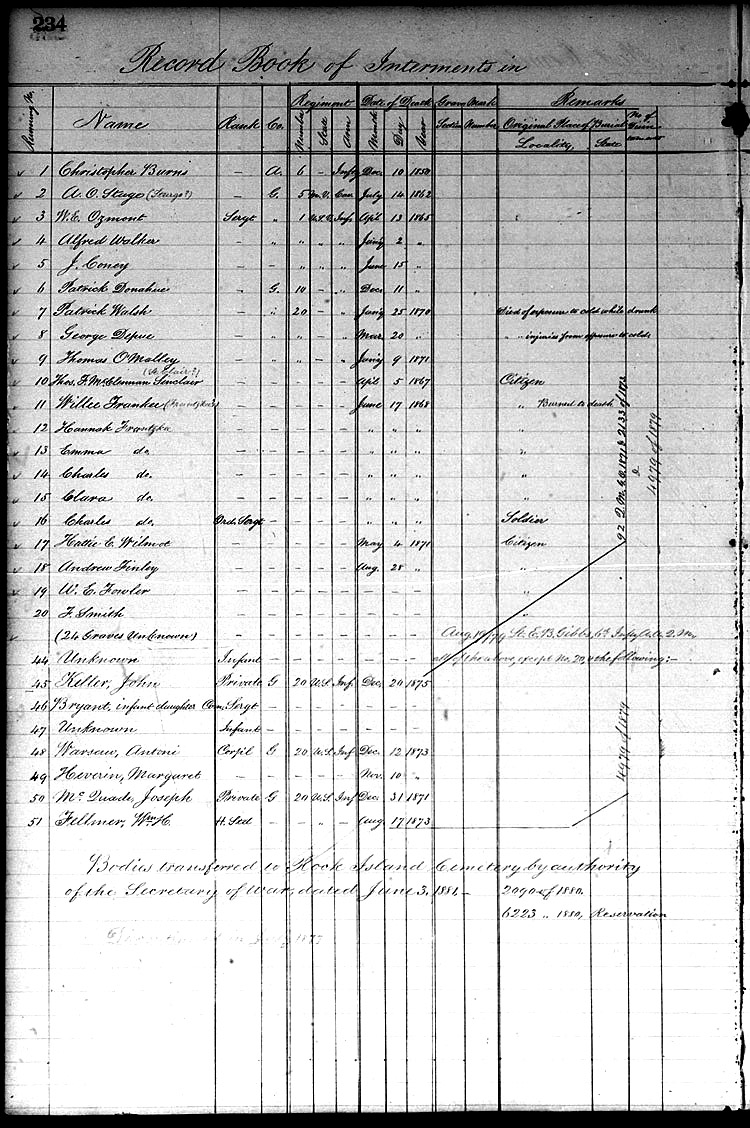 234
Record Book of Interments in
Running No. Name Rank Co. Regiment Date of Death Grave Mark Remarks
Number State Arm Month Day Year Section Number Original Place of Burial No. of
Locality, State
✓ 1 Christopher Burns – A. 6 – Infy Dec. 10 1850
✓ 2 A. O. Stuge (Sturgs?) – G. 5 Cav. July 14 1862
✓ 3 W. E. Ozmont Sergt „ 1 U.S.V. Inf. Apl. 13 1865
✓ 4 Alfred Walker – „ „ „ „ Jany 2 „
✓ 5 J. Coney – „ „ „ „ June 15 „
✓ 6 Patrick Donahue – G. 10 – „ Dec. 11 „
✓ 7 Patrick Walsh – „ 20 – „ Jany 25 1870 Died of exposure to cold while drunk
✓ 8 George Depue – „ „ – „ Mar. 20 „ „ injuries from exposure to cold.
✓ 9 Thomas O'Malley – „ „ – „ Jany 9 1871
(St. Clair?)
✓ 10 Thos. F. McClennan Sinclair – – – – – Apl. 5 1867 Citizen
✓ 11 Willie Frankee (Frantzka?) – – – – – June 17 1868 „ Burned to death
✓ 12 Hannah Frantzka – – – – – „ „ „ „
✓ 13 Emma do. – – – – – „ „ „ „
✓ 14 Charles do. – – – – – „ „ „ „
✓ 15 Clara do. – – – – – „ „ „ „
✓ 16 Charles do. Ord. Sergt – – – – „ „ „ Soldier
✓ 17 Hattie C. Wilmot – – – – – May 4 1871 Citizen
✓ 18 Andrew Finley – – – – – Aug. 28 „ „
✓ 19 W. E. Fowler – – – – – – – – „
20 F. Smith – – – – – – – – „
✓ (24 Graves Unknown) – – – – – – – – Aug. Lt. E. B. Gibbs, 6th Infy Q.M.
44 Unknown Infant – – – – – – – all of the above, except No. 20, & the following:–
45 Keller, John Private G 20 U.S. Inf. Dec. 20 1875
46 Bryant, infant daughter Com. Sergt – – – – – – –
47 Unknown Infant – – – – – – –
48 Warsaw, Antoni Corp'l G 20 U.S. Inf. Dec. 12 1873
49 Heverin, Margaret – – – – – Nov. 10 „
50 McQuade, Joseph Private G 20 U.S. Inf. Dec. 31 1871
51 Fellmer, Wm. H. – – „ – Aug. 17 1873
4979 of 1879
4979 of 1879
Bodies transferred to Rock Island Cemetery by authority
of the Secretary of War, dated June 3. 1881.– 2090 of 1880.
6223 „ 1880, Reservation